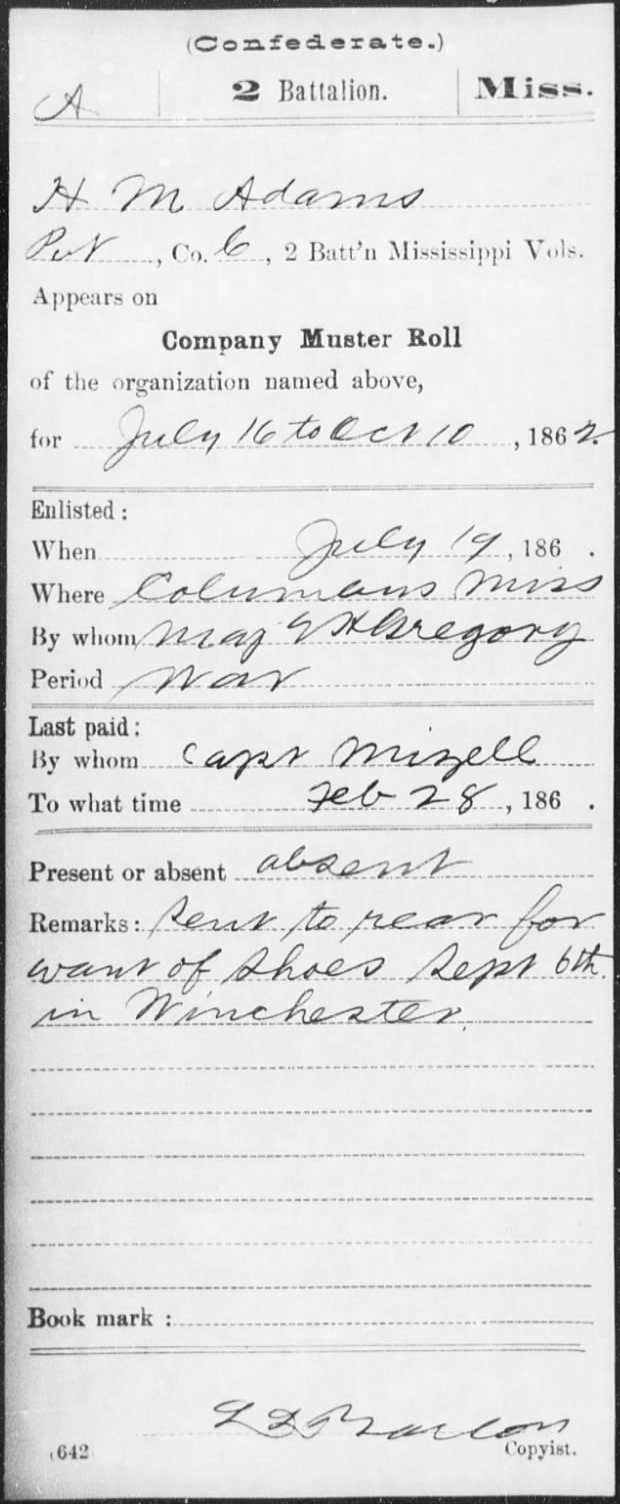 (Confederate.)
A | 2 Battalion. | Miss.
H M Adams
Pvt, Co. C, 2 Batt'n Mississippi Vols.
Appears on
Company Muster Roll
of the organization named above,
for July 16 to Oct 10, 1862.
Enlisted:
When July 19, 186 .
Where Columbus Miss
By whom Maj Gregory
Period War
Last paid:
By whom Capt Mizell
To what time Feb 28, 186 .
Present or absent absent
Remarks: Sent to rear for
want of shoes Sept 6th.
in Winchester.
Book mark:
642
Copyist.